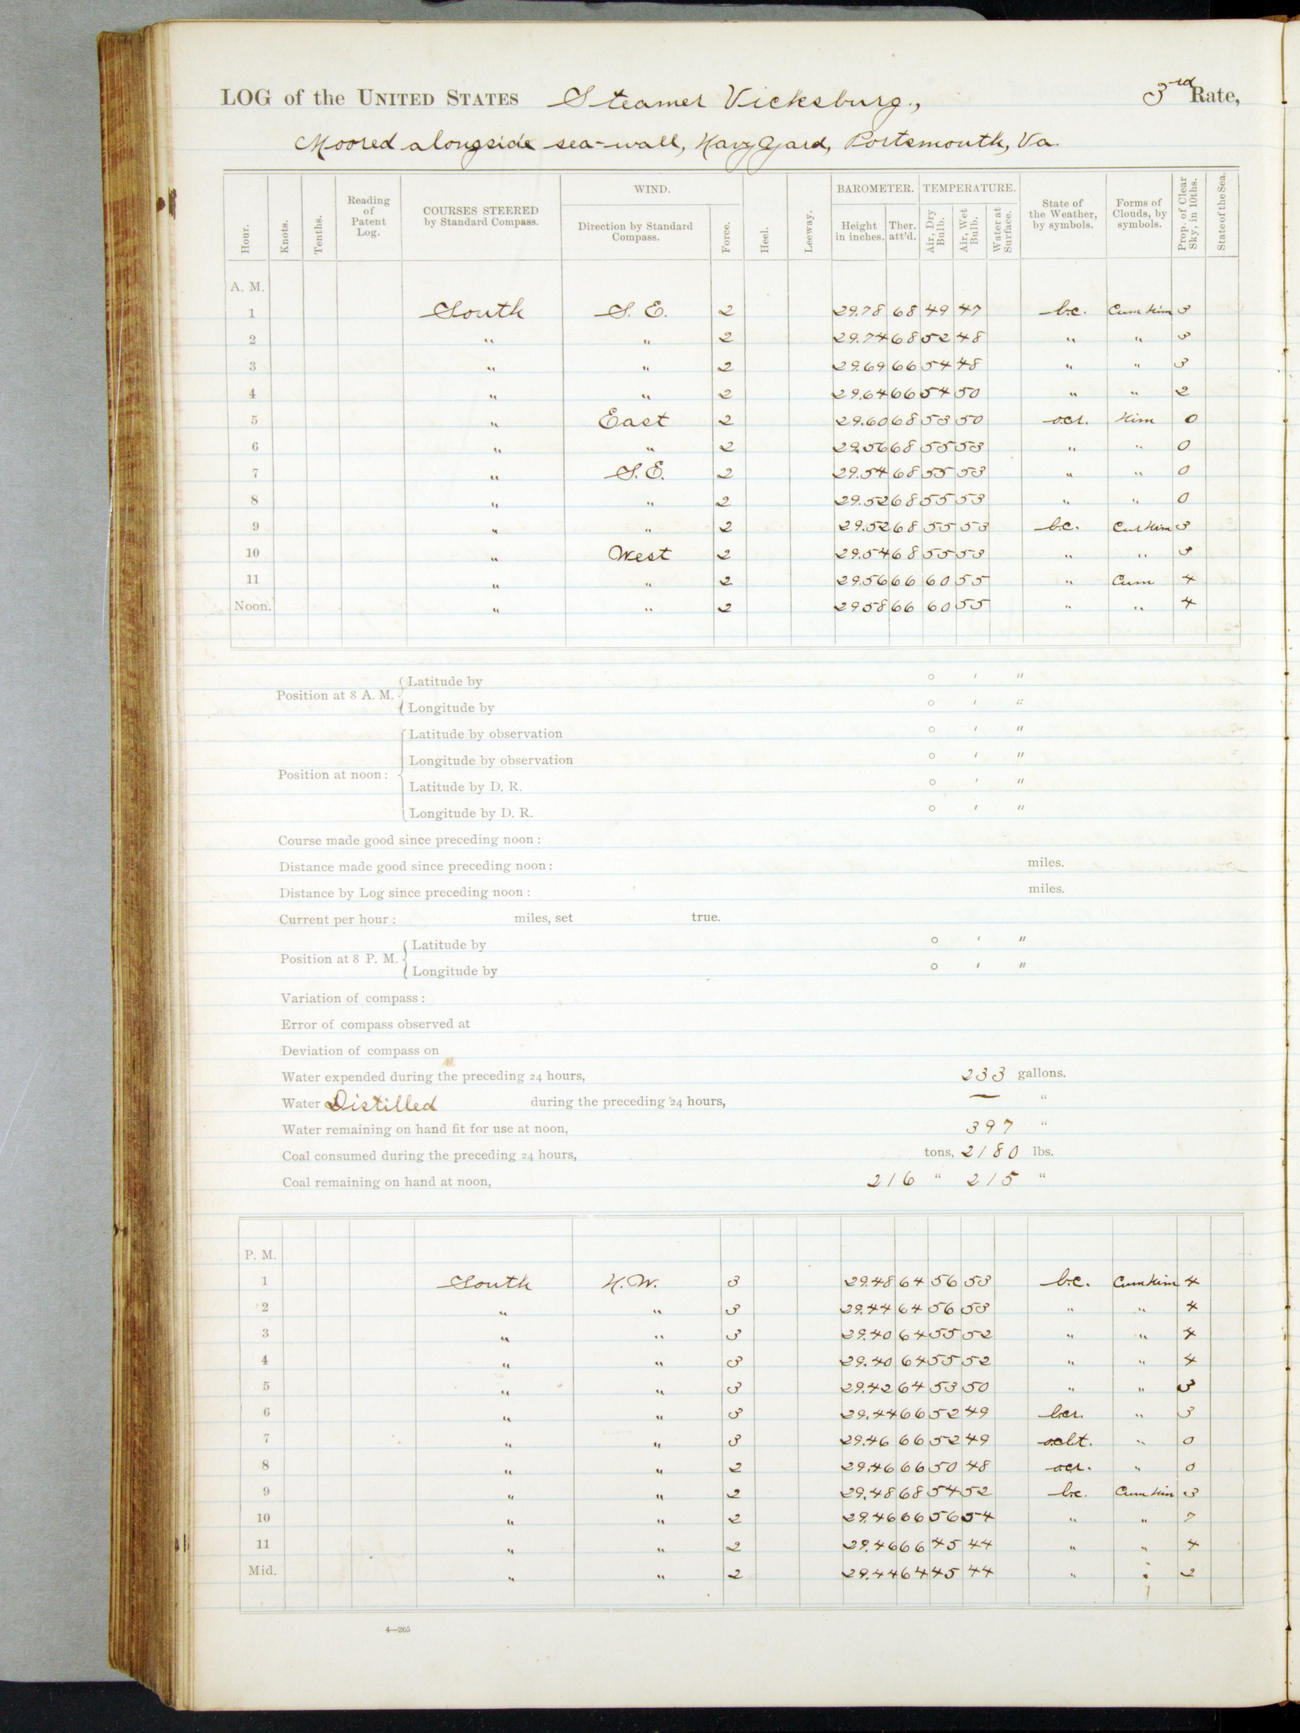 LOG of the UNITED STATES Steamer Vicksburg., 3rd Rate,
Moored alongside sea-wall, Navy Yard, Portsmouth, Va.
Hour. Knots. Tenths. Reading of Patent Log. COURSES STEERED by Standard Compass. WIND. Direction by Standard Compass. Force. Heel. Leeway. BAROMETER. Height in inches. Ther. att'd. TEMPERATURE. Air, Dry Bulb. Air, Wet Bulb. Water at Surface. State of the Weather, by symbols. Forms of Clouds, by symbols. Prop. of Clear Sky, in 10ths. State of the Sea.
A. M.
1 South S. E. 2 29.78 68 49 47 b.c. Cum Nim 3
2 " " 2 29.74 68 52 48 " " 3
3 " " 2 29.69 66 54 48 " " 3
4 " " 2 29.64 66 54 50 " " 2
5 " East 2 29.60 68 53 50 o.c.r. Nim 0
6 " " 2 29.56 68 55 53 " " 0
7 " S.E. 2 29.54 68 55 53 " " 0
8 " " 2 29.52 68 55 53 " " 0
9 " " 2 29.52 68 55 53 b.c. Cum Nim 3
10 " West 2 29.54 68 55 53 " " 3
11 " " 2 29.56 66 60 55 " Cum 4
Noon. " " 2 29.58 66 60 55 " " 4
Position at 8 A. M. Latitude by ° ' "
Longitude by ° ' "
Position at noon: Latitude by observation ° ' "
Longitude by observation ° ' "
Latitude by D. R. ° ' "
Longitude by D. R. ° ' "
Course made good since preceding noon:
Distance made good since preceding noon: miles.
Distance by Log since preceding noon: miles.
Current per hour: miles, set true.
Position at 8 P. M. Latitude by ° ' "
Longitude by ° ' "
Variation of compass:
Error of compass observed at
Deviation of compass on
Water expended during the preceding 24 hours, 233 gallons.
Water Distilled during the preceding 24 hours, — "
Water remaining on hand fit for use at noon, 397 "
Coal consumed during the preceding 24 hours, tons, 2180 lbs.
Coal remaining on hand at noon, 216 " 215 "
P. M.
1 South N.W. 3 29.48 64 56 53 b.c. Cum Nim 4
2 " " 3 29.44 64 56 53 " " 4
3 " " 3 29.40 64 55 52 " " 4
4 " " 3 29.40 64 55 52 " " 4
5 " " 3 29.42 64 53 50 " " 3
6 " " 3 29.44 66 52 49 b.c.r. " 3
7 " " 3 29.46 66 52 49 o.c.l.t. " 0
8 " " 2 29.46 66 50 48 o.c.r. " 0
9 " " 2 29.48 68 54 52 b.c. Cum Nim 3
10 " " 2 29.46 66 56 54 " " 7
11 " " 2 29.46 66 45 44 " " 4
Mid. " " 2 29.44 64 45 44 " " 2
4—265